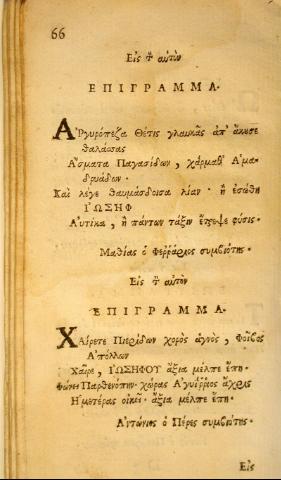 66
Εἰς τ̃ αὐτὸν
ΕΠΙΓΡΑΜΜΑ.
ΑΡγυρόπεζα Θέτις γλαυκᾶς ἀπ' ἄκουσε
θαλάσσας
Ἄσματα Παγασίδων, χάρμαθ' Ἁμα-
δρυάδων.
Καὶ λέγε θαυμάσδοισα λίαν· ἢ ἐσάθη
ΙΩΣΗΦ
Αὐτίκα, ἢ πάντων τάξιν ἔτρεψε φύσις.
Μαθίας ὁ Φερράριος συμβιότης.
Εἰς τ̃ αὐτὸν
ΕΠΙΓΡΑΜΜΑ.
ΧΑίρετε Πιερίδων χορὸς ἁγνός, Φοῖβος
Ἀπόλλων
Χαῖρε, ΙΩΣΗΦΟΥ ἄξια μέλπε ἔπη.
Παρθενόπην· χώρας
Ἡμετέρας ἄξια μέλπε ἔπη.
Ἀντώνιος ὁ Πέρες συμβιότης.
Εἰς